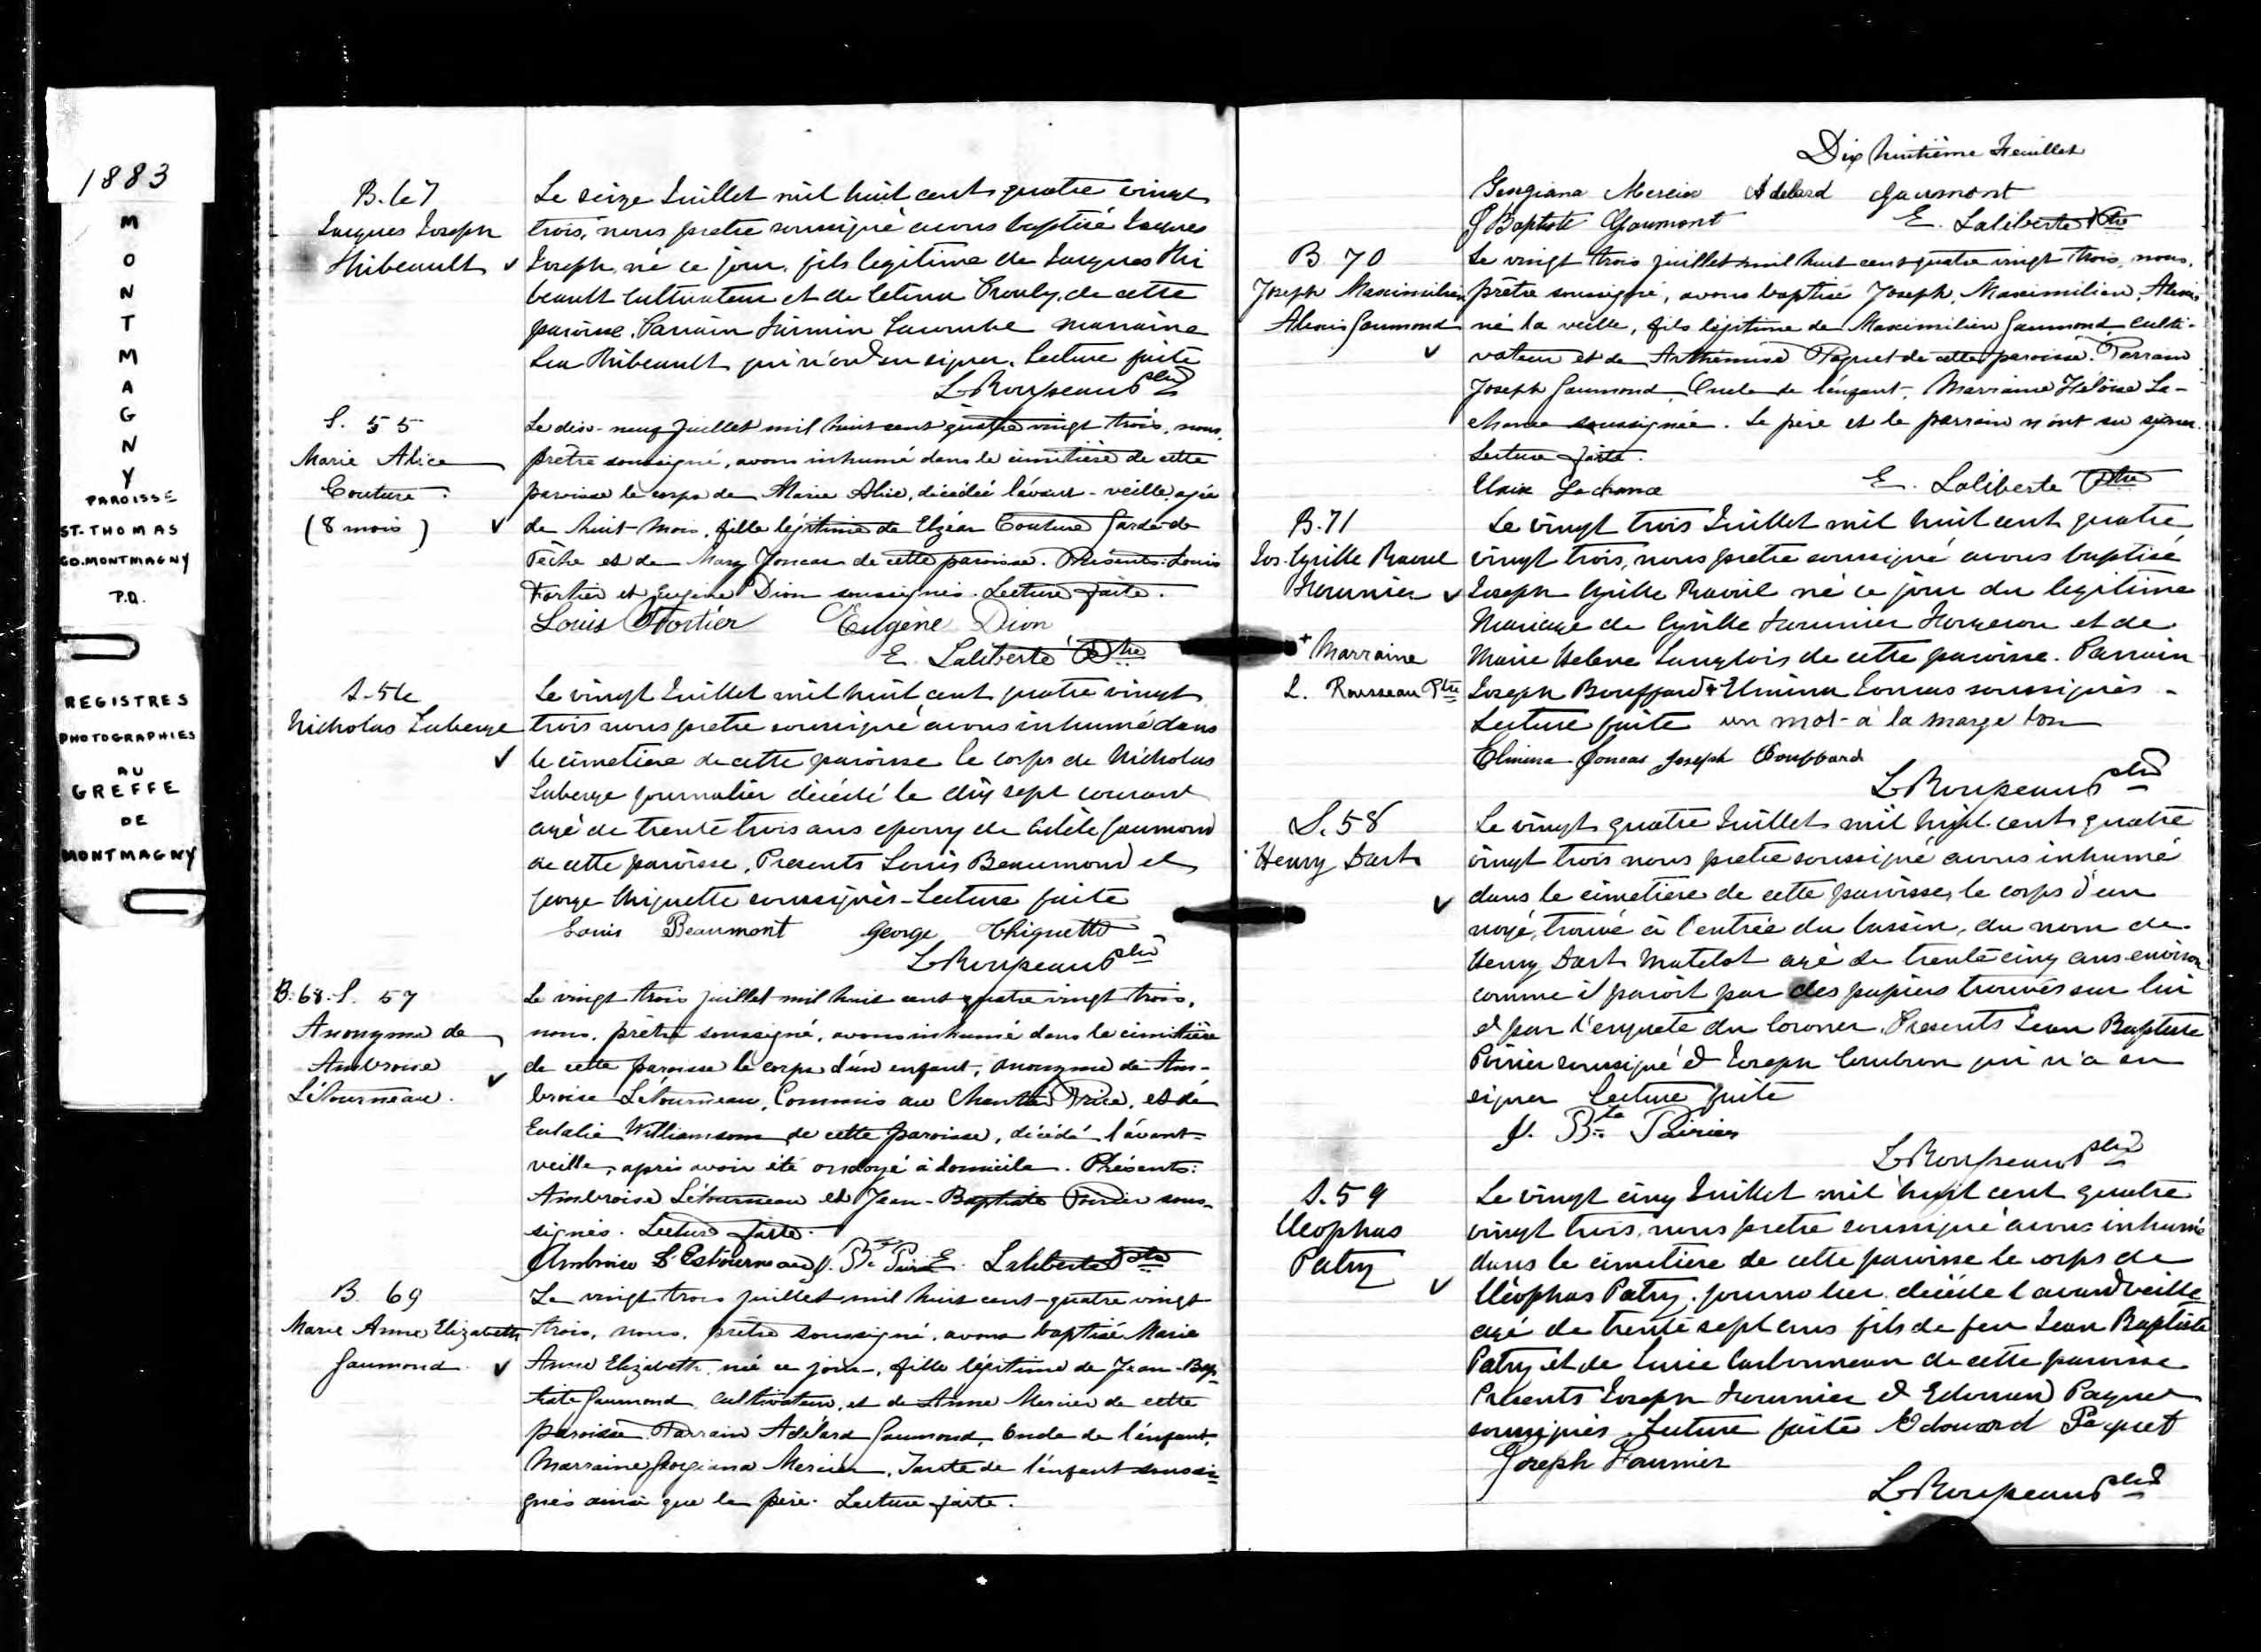 1883
MONTMAGNY
PAROISSE
ST-THOMAS
CO. MONTMAGNY
P.Q.
REGISTRES
PHOTOGRAPHIES
AU
GREFFE
DE
MONTMAGNY
B. 67
Jacques Joseph
Thibeault
Le seize Juillet mil huit cent quatre vingt
trois, nous pretre soussigné avons baptisé Jacques
Joseph, né ce jour, fils legitime de Jacques Thi
beault Cultivateur et de Celina Proulx, de cette
paroisse. Parrain Firmin Lacombe marraine
Lea Thibeault qui n'ont su signer. Lecture faite
L Rousseau ptre
S. 55
Marie Alice
Couture.
(8 mois)
Le dix-neuf Juillet mil huit cent quatre vingt trois, nous,
prêtre soussigné, avons inhumé dans le cimitière de cette
paroisse le corps de Marie Alice, décédée l'avant-veille, agée
de huit mois, fille légitime de Elzéar Couture Garde-de
Pêche et de Mary Joncas de cette paroisse. Présents: Louis
Fortier et Eugène Dion soussignés. Lecture faite.
Louis Fortier Eugène Dion
E. Laliberté Ptre
S. 56
Nicholas Laberge
Le vingt Juillet mil huit cent quatre vingt
trois nous pretre soussigné avons inhumé dans
le cimetiere de cette paroisse le corps de Nicholas
Laberge journalier décédé le dix sept courant
agé de trente trois ans epoux de Adèle Gaumond
de cette paroisse. Presents Louis Beaumond et
George Chiquette soussignés - Lecture faite
Louis Beaumont George Chiquette
L Rousseau ptre
B. 68. S. 57
Anonyme de
Ambroise
Létourneau.
Le vingt trois juillet mil huit cent quatre vingt trois,
nous, prêtre soussigné, avons inhumé dans le cimitière
de cette paroisse le corps d'un enfant, anonyme de Am-
broise Létourneau, Commis au Chantier Price, et de
Eulalie Williamson de cette paroisse, décédé l'avant-
veille, après avoir été ondoyé à domicile. Présents:
Ambroise Létourneau et Jean-Baptiste Poirier sous-
signés. Lecture faite.
Ambroise L'Estourneau J. Bte Poirier E. Laliberté Ptre
B. 69
Marie Anne Elizabeth
Gaumond
Le vingt trois juillet mil huit cent-quatre vingt
trois, nous, prêtre soussigné, avons baptisé Marie
Anne Elizabeth, née ce jour, fille légitime de Jean-Bap-
tiste Gaumond, Cultivateur, et de Anne Mercier de cette
paroisse. Parrain Adélard Gaumond, Oncle de l'enfant,
Marraine Georgiana Mercier, Tante de l'enfant soussi-
gnés ainsi que le père. Lecture faite.
Dix huitième Feuillet
Georgiana Mercier Adelard Gaumont
J Baptiste Gaumont E. Laliberté Ptre
B. 70
Joseph Maximilien
Alexis Gaumond
Le vingt trois juillet mil huit cent quatre vingt trois, nous,
prêtre soussigné, avons baptisé Joseph, Maximilien, Alexis
né la veille, fils légitime de Maximilien Gaumond, Culti-
vateur et de Arthémise Paquet de cette paroisse. Parrain
Joseph Gaumond, Oncle de l'enfant, Marraine Héloïse La-
chance soussignée. Le père et le parrain n'ont su signer.
Lecture faite.
Lachance E. Laliberté Ptre
B. 71
Jos. Cyrille Raoul
Fournier
+ Marraine
L. Rousseau Ptre
Le vingt trois Juillet mil huit cent quatre
vingt trois, nous pretre soussigné avons baptisé
Joseph Cyrille Raoul né ce jour du legitime
Mariage de Cyrille Fournier Forgeron et de
Marie Helene Langlois de cette paroisse. Parrain
Joseph Bouffard + Elmina Joncas soussignés -
Lecture faite un mot à la marge bon
Elmina Joncas Joseph Bouffard
L Rousseau ptre
S. 58
Henry Dart
Le vingt quatre Juillet mil huit cent quatre
vingt trois nous pretre soussigné avons inhumé
dans le cimetiere de cette paroisse, le corps d'un
noyé, trouvé à l'entrée du bassin, du nom de
Henry Dart Matelot agé de trente cinq ans environ
comme il paroit par des papiers trouvés sur lui
et par l'enquete du Coroner. Presents Jean Baptiste
Poirier soussigné & Joseph qui n'a su
signer Lecture faite
J. Bte Poirier
L Rousseau ptre
S. 59
Cleophas
Patry
Le vingt cinq Juillet mil huit cent quatre
vingt trois, nous pretre soussigné avons inhumé
dans le cimetiere de cette paroisse le corps de
Cléophas Patry, journalier, décédé l'avant veille
agé de trente sept ans fils de feu Jean Baptiste
Patry et de Lucie Carbonneau de cette paroisse
Présents Joseph Fournier & Edouard Paquet
soussignés. Lecture faite Edouard Paquet
Joseph Fournier
L Rousseau ptre